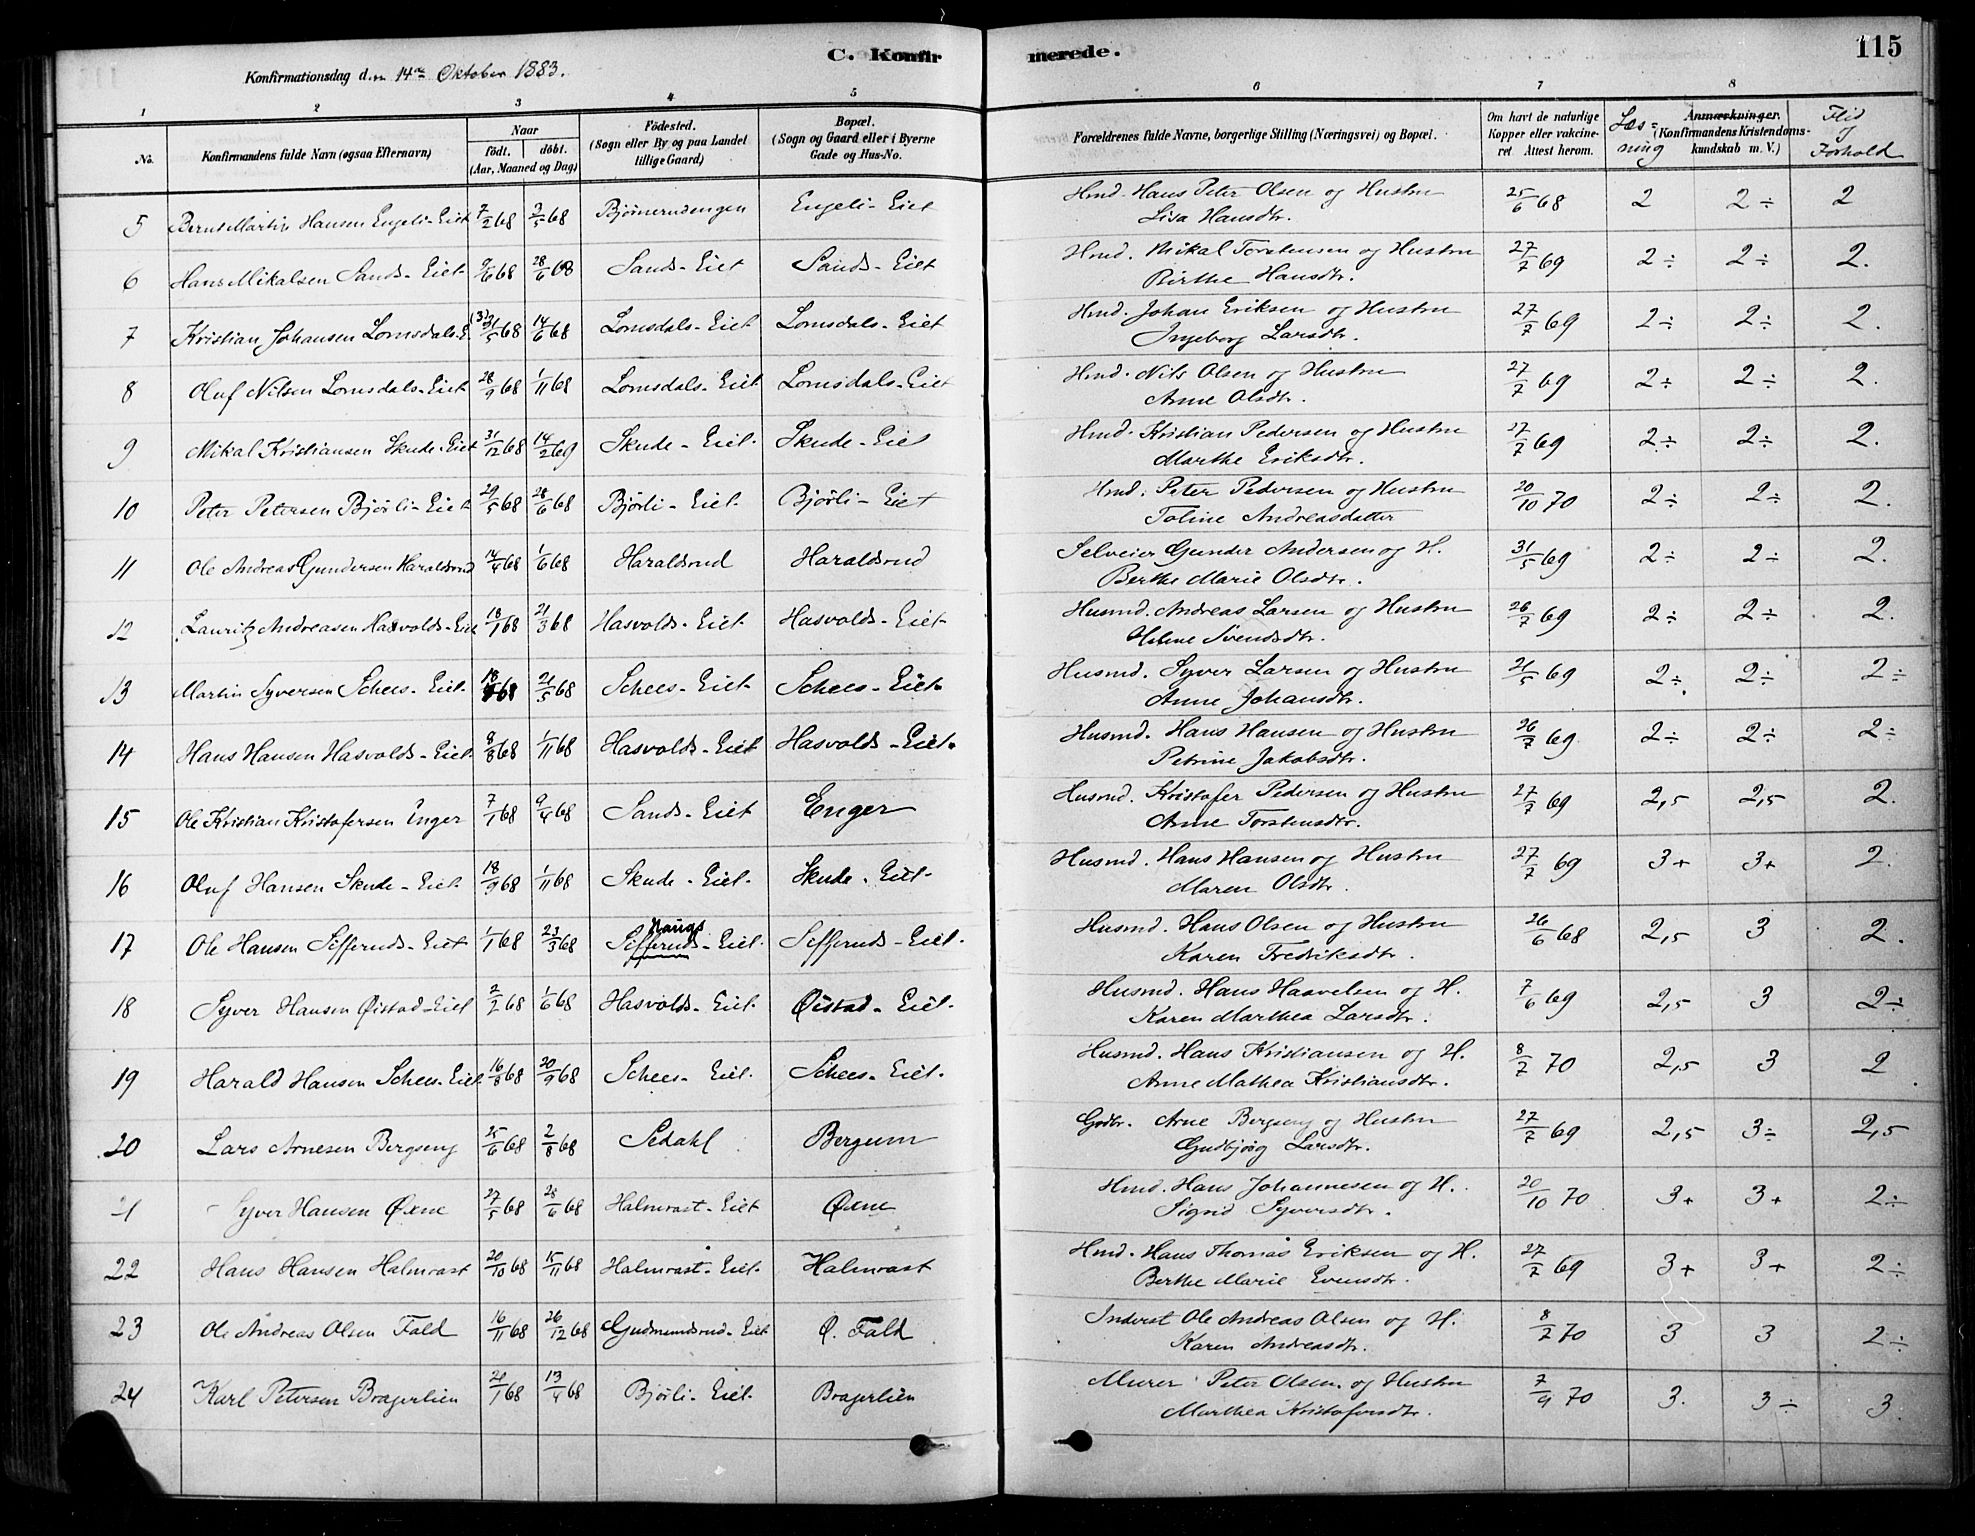 C. Konfirmerede. 115
Konfirmationsdag den 14de Oktober 1883.
1 2 3 4 5 6 7 8
No. Konfirmandens fulde Navn (ogsaa Efternavn) Naar født. døbt. (Aar, Maaned og Dag) Fødested. (Sogn eller By og paa Landet tillige Gaard) Bopæl. (Sogn og Gaard eller i Byerne Gade og Hus-No. Forældrenes fulde Navne, borgerlige Stilling (Næringsvei) og Bopæl. Om havt de naturlige Kopper eller vakcineret. Attest herom. Læsning Anmærkninger. (Konfirmandens Kristendomskundskab m. V.) Flid og Forhold
5 Bernt Martin Hansen Engeli-Eiet 7/2 68 2/5 68 Bjørnerudengen Engeli-Eiet Hmd. Hans Peter Olsen og Hustru 25/6 68 2 2÷ 2
Lisa Hansdtr.
6 Hans Mikalsen Sands-Eiet 9/6 68 28/6 68 Sands-Eiet Sands-Eiet Hmd. Mikal Torstensen og Hustru 27/7 69 2÷ 2÷ 2.
Birthe Hansdtr.
7 Kristian Johansen Lomsdals-E. 31/5 68 14/6 68 Lomsdals-Eiet Lomsdals-Eiet Hmd. Johan Eriksen og Hustru 27/7 69 2÷ 2÷ 2.
Ingeborg Larsdtr.
8 Oluf Nilsen Lomsdals-Eiet 28/9 68 1/11 68 Lomsdals-Eiet Lomsdals-Eiet Hmd. Nils Olsen og Hustru 27/7 69 2÷ 2÷ 2.
Anne Olsdtr.
9 Mikal Kristiansen Skude-Eiet 31/12 68 14/2 69 Skude-Eiet. Skude-Eiet Hmd. Kristian Pedersen og Hustru 27/7 69 2÷ 2÷ 2.
Marthe Eriksdtr.
10 Peter Petersen Bjørli-Eiet 29/5 68 28/6 68 Bjørli-Eiet. Bjørli-Eiet Hmd. Peter Pedersen og Hustru 20/10 70 2÷ 2÷ 2.
Toline Andreasdatter
11 Ole Andreas Gundersen Haraldsrud 14/4 68 1/6 68 Haraldsrud Haraldsrud Selveier Gunder Andersen og H. 31/5 69 2÷ 2÷ 2.
Berthe Marie Olsdtr.
12 Lauritz Andreasen Hasvolds-Eiet 18/1 68 21/3 68 Hasvolds-Eiet. Hasvolds-Eiet Husmd. Andreas Larsen og Hustru 26/7 69 2÷ 2÷ 2.
Helene Svendsdtr.
13 Martin Syversen Schees-Eiet. 21/5 68 Schees-Eiet. Schees-Eiet. Husmd. Syver Larsen og Hustru 21/5 69 2÷. 2÷ 2÷
Anne Johansdtr.
14 Hans Hansen Hasvolds-Eiet. 8/8 68 1/11 68 Hasvolds-Eiet Hasvolds-Eiet. Husmd. Hans Hansen og Hustru 26/7 69 2÷ 2÷ 2÷
Petrine Jakobsdtr.
15 Ole Kristian Kristofersen Enger 7/1 68 9/4 68 Sands-Eiet Enger Husmd. Kristofer Pedersen og Hustru 27/7 69 2,5 2,5 2.
Anne Torstensdtr.
16 Oluf Hansen Skude-Eiet. 18/9 68 1/11 68 Skude-Eiet. Skude-Eiet. Husmd. Hans Hansen og Hustru 27/7 69 3+ 3+ 2.
Maren Olsdtr.
17 Ole Hansen Sefferuds-Eiet 1/1 68 23/3 68 Sefferuds-Eiet. Sefferuds-Eiet. Husmd. Hans Olsen og Hustru 26/6 68 2,5 3 2.
Karen Fredriksdtr.
18 Syver Hansen Øistad-Eiet 2/2 68 1/6 68 Hasvolds-Eiet. Øistad-Eiet. Husmd. Hans Haavelsen og H. 7/6 69 2,5 3 2÷
Karen Marthea Larsdtr.
19 Harald Hansen Schees-Eiet. 16/8 68 20/9 68 Schees-Eiet. Schees-Eiet. Husmd. Hans Kristiansen og H. 8/2 70 2,5 3 2.
Anne Mathea Kristiansdtr.
20 Lars Arnesen Bergseng 25/6 68 2/8 68 Sedahl Bergum Gdbr. Arne Bergseng og Hustru 27/7 69 2,5 3÷ 2,5
Gudbjøig Larsdtr.
21 Syver Hansen Øxne 27/5 68 28/6 68 Halmrast-Eiet Øxne Hmd. Hans Johannesen og H. 20/10 70 3+ 3+ 2÷
Sigrid Syversdtr.
22 Hans Hansen Halmrast 20/10 68 15/11 68 Halmrast-Eiet. Halmrast Hmd. Hans Thomas Eriksen og H. 27/7 69 3+ 3+ 2÷
Berthe Marie Evensdtr.
23 Ole Andreas Olsen Fald 16/11 68 26/12 68 Gudmundsrud-Eiet Ø. Fald Inderst Ole Andreas Olsen og H. 8/2 70 3 3 2÷
Karen Andreasdtr.
24 Karl Petersen Bragerlien 21/1 68 13/4 68 Bjørli-Eiet. Bragerlien Murer Peter Olsen og Hustru 7/9 70 3. 3÷ 3.
Marthea Kristofersdtr.